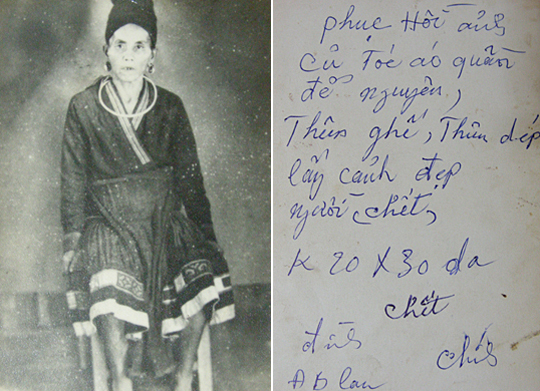 phục Hồi ảnh
Củ Tóc áo quần
để nguyên,
Thêm ghế, Thêm dép
lấy cảnh đẹp
người chết,
K 20 X 30 da
chết